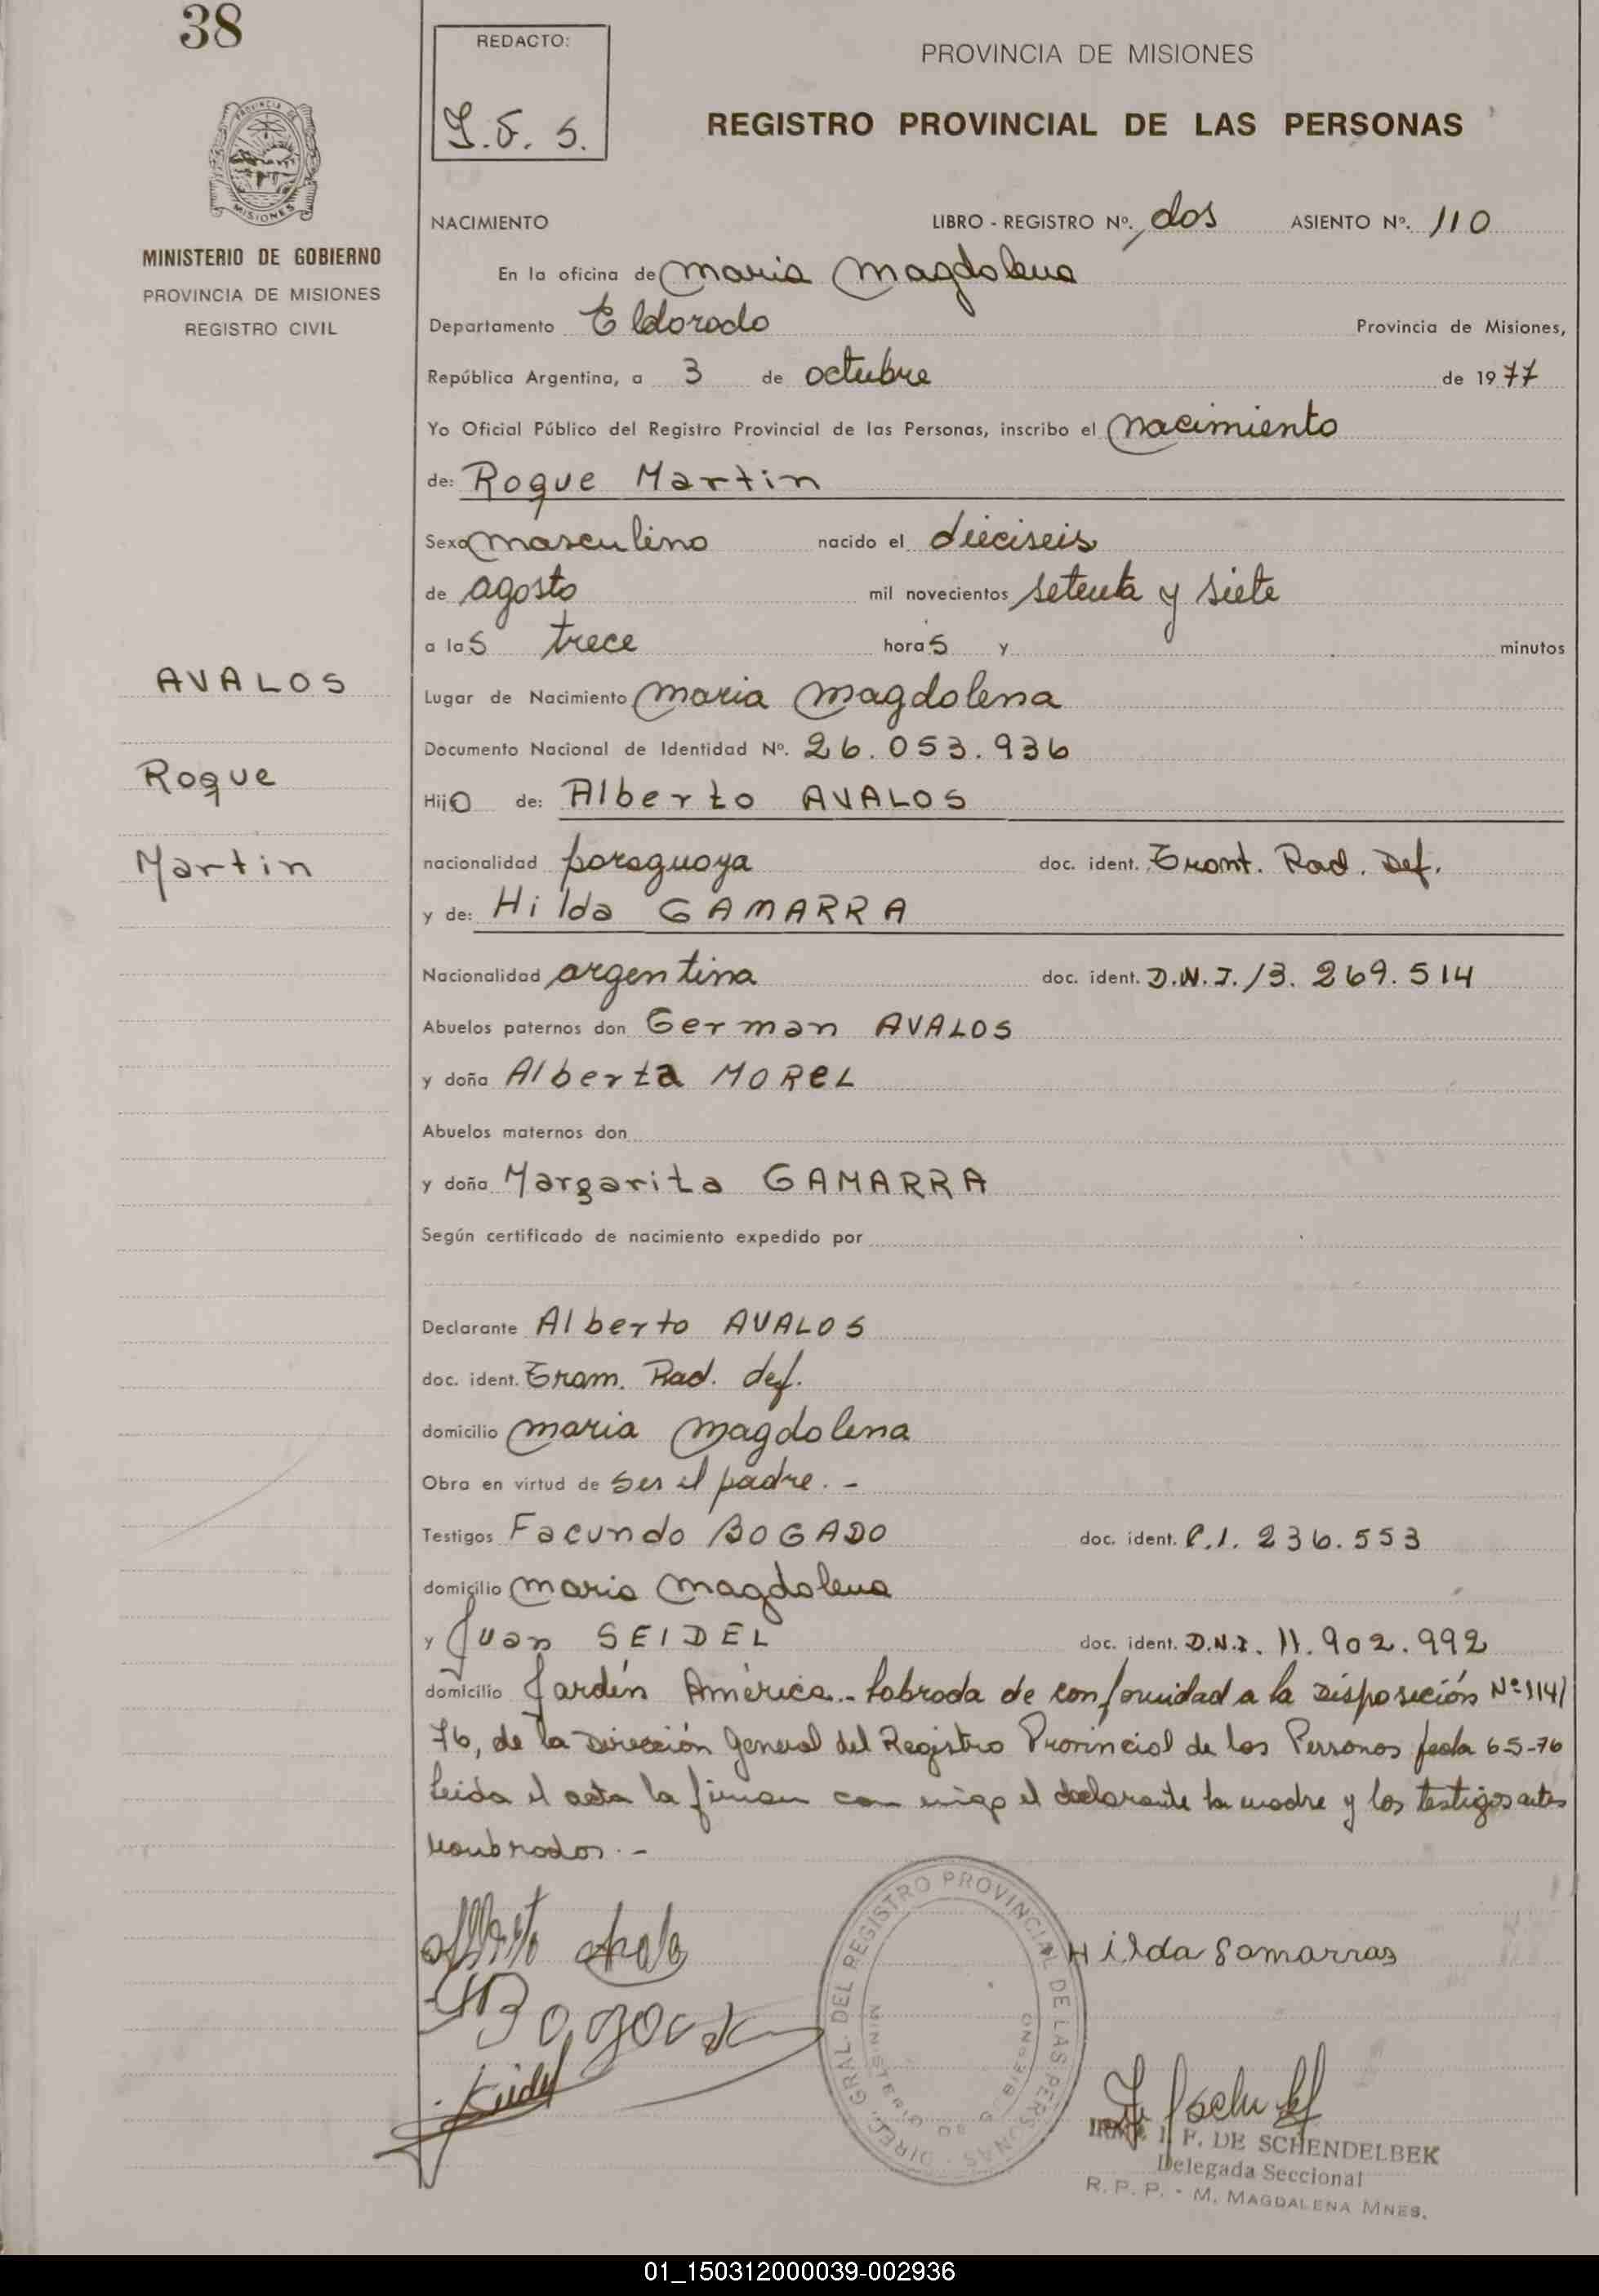 38
REDACTO:
PROVINCIA DE MISIONES
REGISTRO PROVINCIAL DE LAS PERSONAS
MINISTERIO DE GOBIERNO
PROVINCIA DE MISIONES
REGISTRO CIVIL
NACIMIENTO LIBRO - REGISTRO Nº. dos ASIENTO Nº. 110
En la oficina de Maria Magdalena
Departamento Eldorado Provincia de Misiones,
República Argentina, a 3 de octubre de 1977
Yo Oficial Público del Registro Provincial de las Personas, inscribo el nacimiento
de: Roque Martin
Sexo masculino nacido el dieciseis
de agosto mil novecientos setenta y siete
a las trece horas y minutos
AVALOS
Roque
Martin
Lugar de Nacimiento Maria Magdalena
Documento Nacional de Identidad Nº. 26.053.936
Hijo de: Alberto AVALOS
nacionalidad paraguaya doc. ident. Tramt. Rad. Def.
y de: Hilda GAMARRA
Nacionalidad argentina doc. ident. D.N.I. 13.269.514
Abuelos paternos don German AVALOS
y doña Alberta MOREL
Abuelos maternos don
y doña Margarita GAMARRA
Según certificado de nacimiento expedido por
Declarante Alberto AVALOS
doc. ident. Tram. Rad. def.
domicilio Maria Magdalena
Obra en virtud de ser el padre. -
Testigos Facundo BOGADO doc. ident. C.I. 236.553
domicilio Maria Magdalena
y Juan SEIDEL doc. ident. D.N.I. 11.902.992
domicilio Jardín América.- Labrada de conformidad a la Disposición Nº 114/
76, de la Dirección General del Registro Provincial de las Personas fecha 6-5-76
Leida el acta la firman conmigo el declarante la madre y los testigos antes
nombrados. -
DIREC. GRAL. DEL REGISTRO PROVINCIAL DE LAS PERSONAS
MINISTERIO DE GOBIERNO
Hilda Gamarras
Seidel
F. DE SCHENDELBEK
Delegada Seccional
R. P. P. - M. MAGDALENA MNES.
01_150312000039-002936